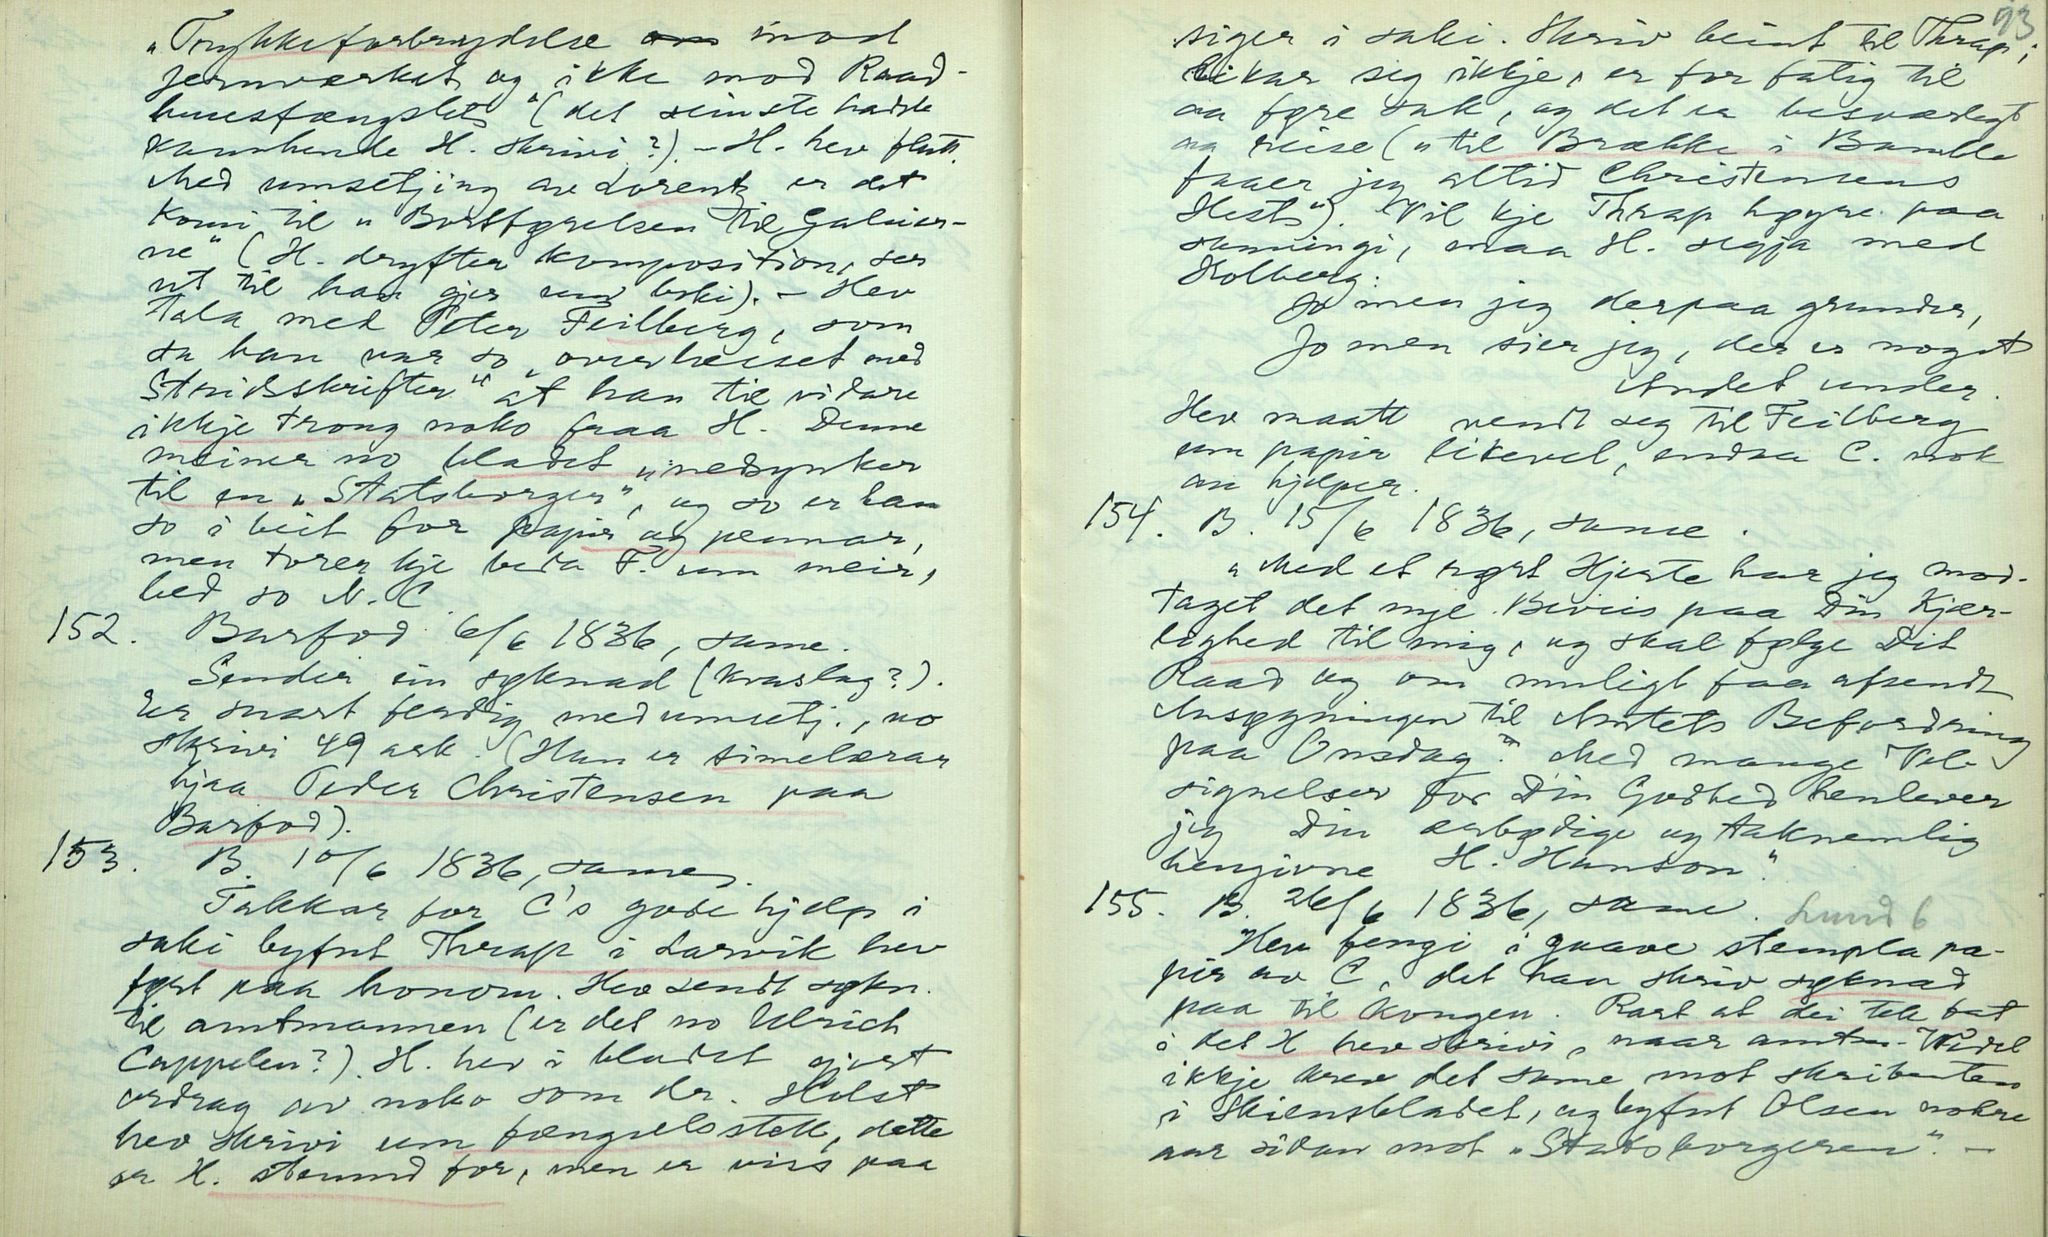 "Trykkeforbrydelse om imod
jernværket og ikke mod Raad-
huusfængslet" (det seinste hadde
kannhende H. skrivi?). – H. hev flutt.
Med umsetjing av Lorentz er det
komi til "Bortførelsen til Galeier-
ne" (H. dryfter komposition, ser
ut til han gjer um boki). – Hev
tala med Peter Feilberg, som
sa han var so "overhæiset med
Stridsskrifter" at han til vidare
ikkje trong noko fraa H. Denne
meiner no bladet "nedsynker
til en "Statsborger", og so er han
so i beit for papir og pennar,
men torer kje beda F. um meir,
bed so N. C.
152. Barfod 6/6 1836, same.
Sender ein søknad (kvaslag?).
Er snart ferdig med umsetj., no
skrivi 49 ark. (Han er timelærar
hjaa Peder Christensen paa
Barfod).
153. B. 10/6 1836, same.
Takkar for C's gode hjelp i
saki byfut Thrap i Larvik hev
ført paa honom. Hev sendt søkn.
til amtmannen (er det no Ulrich
Cappelen?). H. hev i bladet gjort
ordrag av noko som dr. Holst
hev skrivi um fængselsstell, dette
er H. stemnd for, men er viss paa
93
siger i saki. Skriv beint til Thrap;
likar seg ikkje, er for fatig til
aa føre sak, og det er besværlegt
aa reise ("til Brække i Bamble
faaer jeg altid Christensens
Hest"). Vil kje Thrap høyre paa
sanningi, maa H. segja med
Kolberg:
Jo men jeg derpaa grunder,
Jo men sier jeg, der er noget
Andet under.
Hev maatt vendt seg til Feilberg
um papir likevel, endaa C. nok
au hjelper.
154. B. 15/6 1836, same.
"Med et rørt Hjerte har jeg mod-
taget det nye Beviis paa Din Kjær-
lighed til mig, og skal følge Dit
Raad og om muligt faa afsendt
Ansøgningen til Amtets Befordring
paa Onsdag". "Med mange Vel-
signelser for Din Godhed henlever
jeg Din ærbødige og taknemlig
hengivne H. Hanson".
155. B. 26/6 1836, same. Lund 6
Hev fengi i gaave stempla pa-
pir av C, det han skriv søknad
paa til kongen. Rart at dei tek fat
i det H hev skrivi, naar amtm. Wedel
ikkje krev det same mot skribenten
i Skiensbladet, og byfut Olsen nokre
aar sidan mot "Statsborgeren". –